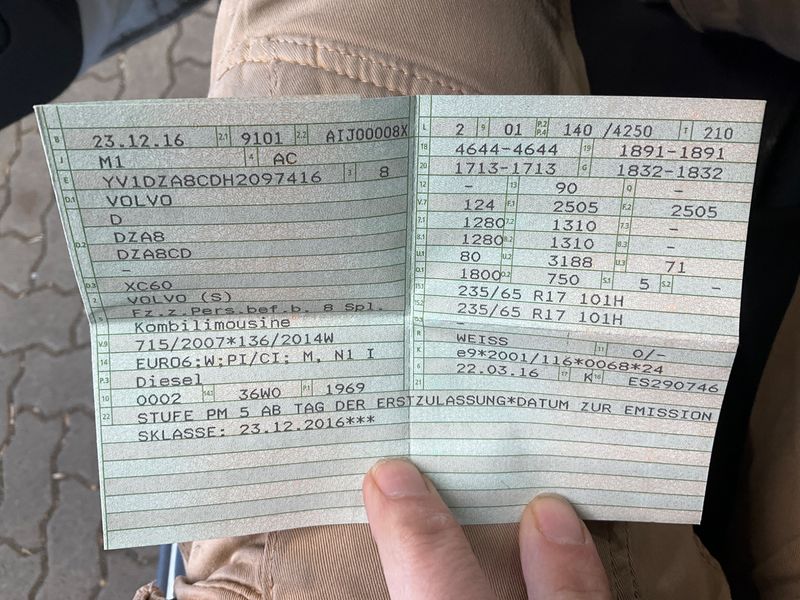 B 23.12.16 2.1 9101 2.2 AIJ00008X
J M1 4 AC
E YV1DZA8CDH2097416 3 8
D.1 VOLVO
D
D.2 DZA8
DZA8CD
-
D.3 XC60
2 VOLVO (S)
Fz.z.Pers.bef.b. 8 Spl.
5 Kombilimousine
V.9 715/2007*136/2014W
14 EURO6;W;PI/CI; M, N1 I
P.3 Diesel
10 0002 14.1 36W0 P.1 1969
L 2 9 01 P.2 P.4 140 /4250 T 210
18 4644-4644 19 1891-1891
20 1713-1713 G 1832-1832
12 - 13 90 Q -
V.7 124 F.1 2505 F.2 2505
7.1 1280 7.2 1310 7.3 -
8.1 1280 8.2 1310 8.3 -
U.1 80 U.2 3188 U.3 71
O.1 1800 O.2 750 S.1 5 S.2 -
15.1 235/65 R17 101H
15.2 235/65 R17 101H
15.3 -
R WEISS 11 0/-
K e9*2001/116*0068*24
6 22.03.16 17 K 16 ES290746
21
22 STUFE PM 5 AB TAG DER ERSTZULASSUNG*DATUM ZUR EMISSION
SKLASSE: 23.12.2016***